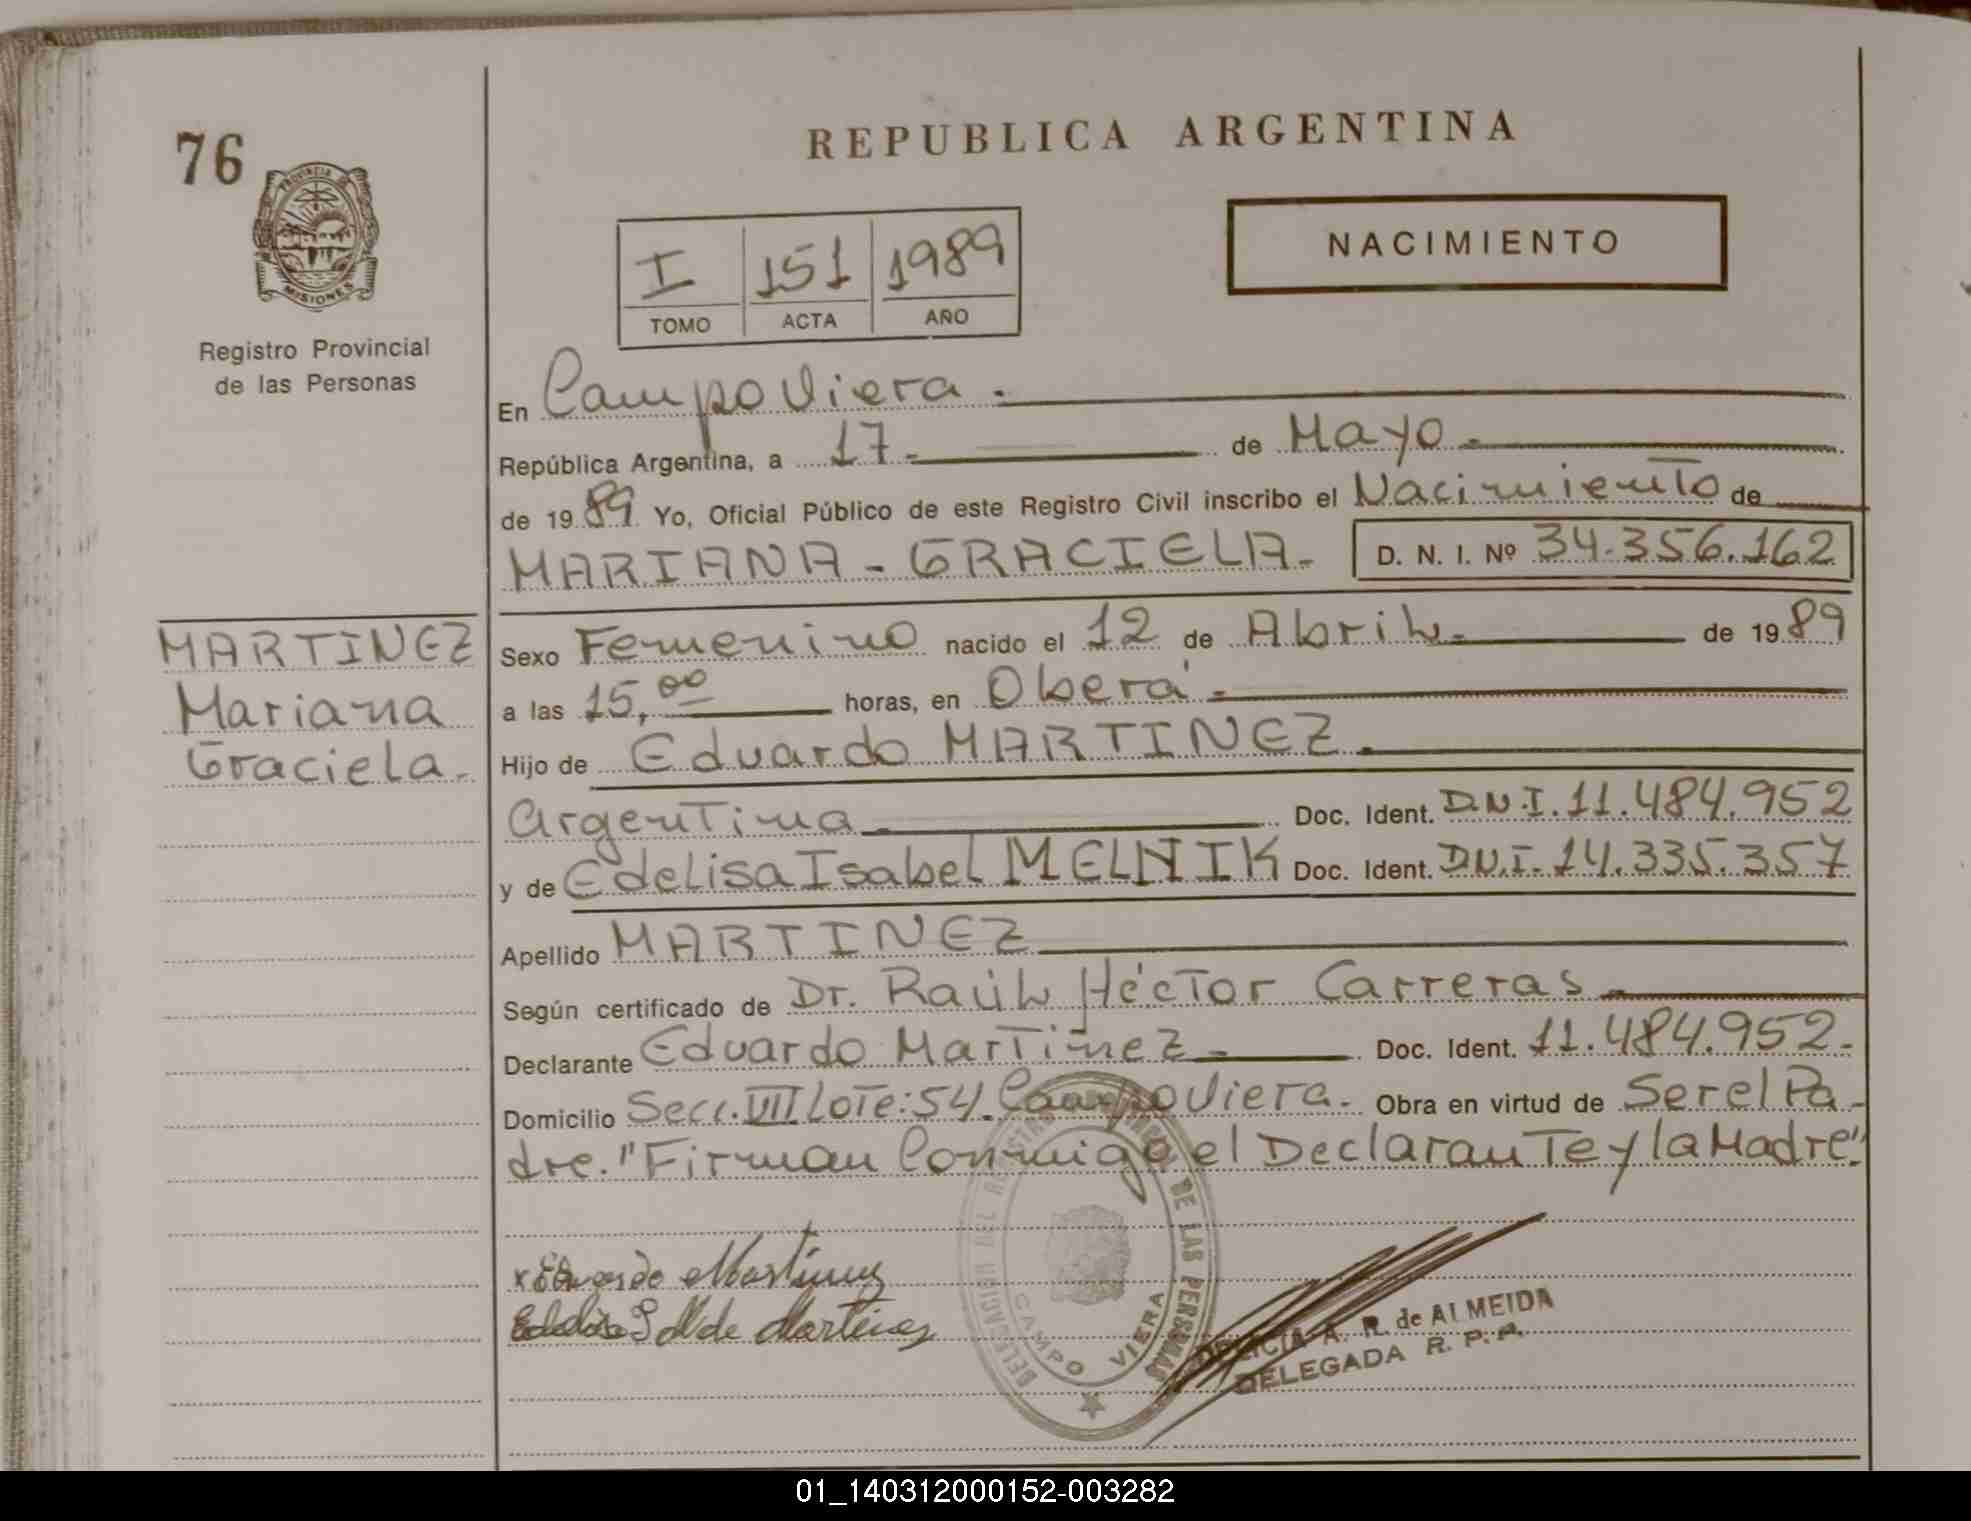 76
REPUBLICA ARGENTINA
PROVINCIA DE
MISIONES
Registro Provincial
de las Personas
I 151 1989
TOMO ACTA AÑO
NACIMIENTO
En Campo Viera.
República Argentina, a 17. de Mayo.
de 1989 Yo, Oficial Público de este Registro Civil inscribo el Nacimiento de
MARIANA - GRACIELA. D. N. I. Nº 34.356.162
MARTINEZ
Mariana
Graciela.
Sexo Femenino nacido el 12 de Abril. de 1989
a las 15,00 horas, en Oberá.
Hijo de Eduardo MARTINEZ.
Argentina. Doc. Ident. D.N.I. 11.484.952
y de Edelisa Isabel MELNIK Doc. Ident. D.N.I. 14.335.357
Apellido MARTINEZ
Según certificado de Dr. Raúl Héctor Carreras.
Declarante Eduardo Martinez. Doc. Ident. 11.484.952.
Domicilio Secc. VIII Lote: 54. Campo Viera. Obra en virtud de Ser el Pa-
dre. "Firman Conmigo el Declarante y la Madre".
x Eduardo Martinez
Edelisa I M de Martinez
DELEGACION DEL REGISTRO DE LAS PERSONAS
CAMPO VIERA
A. R. de ALMEIDA
DELEGADA R. P. P.
01_140312000152-003282